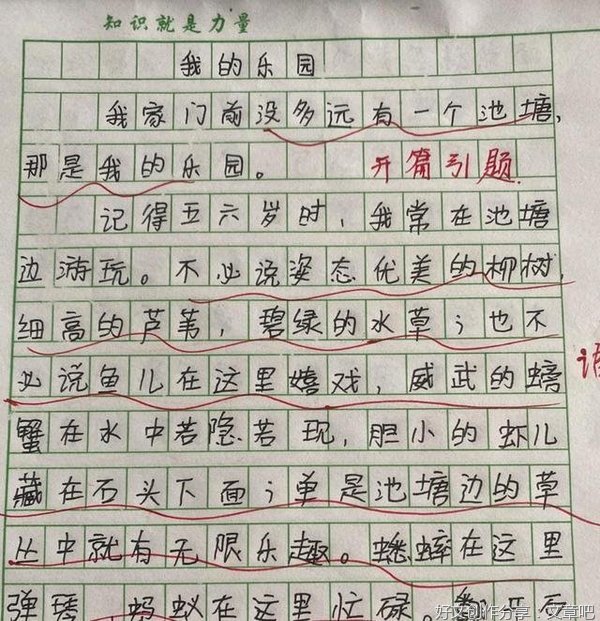 知识就是力量
我的乐园
我家门前没多远有一个池塘,
那是我的乐园。 开篇引题.
记得五六岁时，我常在池塘
边游玩。不必说姿态优美的柳树,
细高的芦苇，碧绿的水草；也不
必说鱼儿在这里嬉戏，威武的螃
蟹在水中若隐若现，胆小的虾儿
藏在石头下面；单是池塘边的草
丛中就有无限乐趣。蟋蟀在这里
弹琴，蚂蚁在这里忙碌。
好文创作分享 文章吧